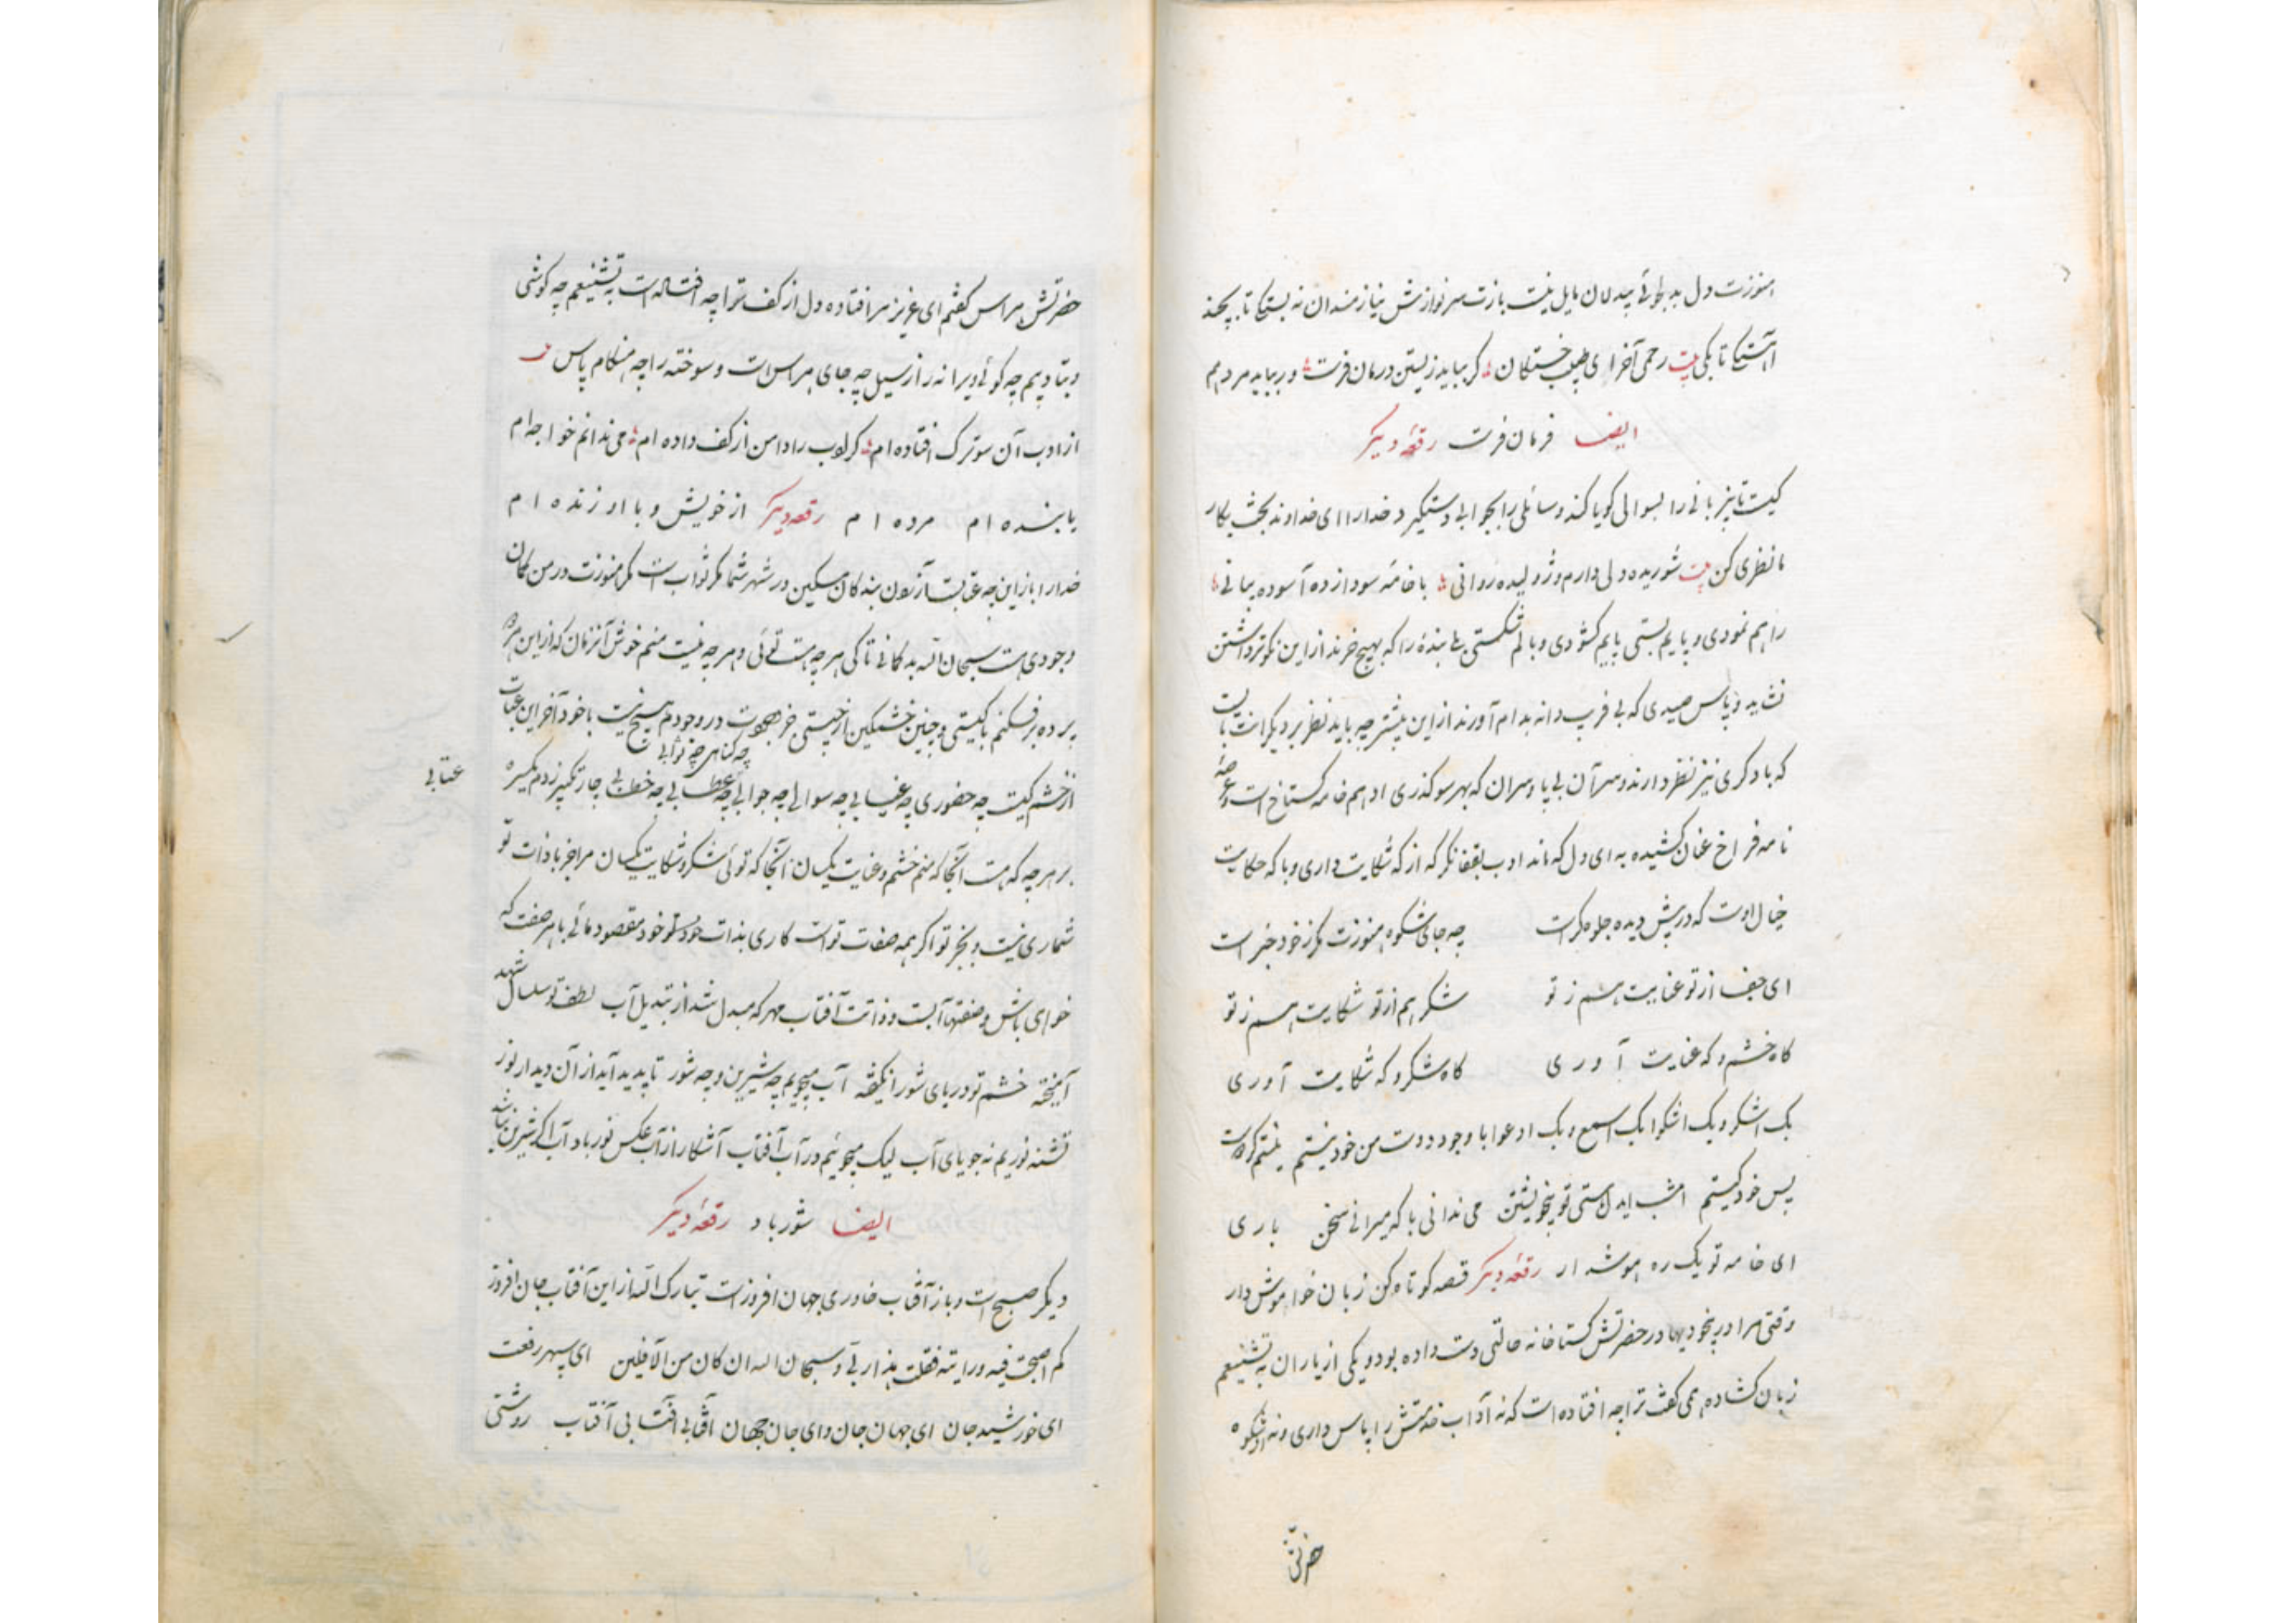 هنوزت دل بدلجوئی بیدلان مایل نیست بازت سر نوازش نیازمندان نه بستگی تا بچند
آهستگی تا بکی بیت رحمی آخر ای طبیب خستگان گر بباید زیستن درمان فرست ور بباید مردنم
ایضا فرمان فرست رقعه دیگر
کیست تا بیزبانی را بسوالی گویا کند و سائلی را بجوابی دستگیرد خدا را ای خداوند بحث بکار
ما نظری کن بیت شوریده دلی دارم و ژولیده روانی با خامه سودازده آسوده بیانی
راهم نمودی و پایم بستی پایم گشودی و بالم شکستی بلی بنده را که بهیچ خرند از این نکوتر داشتن
نشاید و پاس صیدی که بی فریب دانه بدام آورند از این بیشتر چه باید نظر بر دیگرانت بایست
که با دگری نیز نظر دارند و سر آن بی پا و سران که بهر سو گذری او هم خامه گستاخ است و عرصه
نامه فراخ عنان کشیده به ای دل که ماند ادب بقفا نگر که از که شکایت داری و با که حکایت
خیال اوست که در پیش دیده جلوه گر است چه جای شکوه هنوزت مگر ز خود خبر است
ای جفا از تو عنایت هم ز تو شکر هم از تو شکایت هم ز تو
گاه خشم و گه عنایت آوری گاه شکر و گه شکایت آوری
بک اشکر و بک اشکوا بک اسمع و بک ادعوا با وجود دوست من خود نیستم نیستم گر اوست
پس خود کیستم امشب ایدل مستی تو بیخویشتن می ندانی با که میرانی سخن باری
ای خامه تو یک ره هوشدار رقعه دیگر قصه کوتاه کن زبان خواموش دار
وقتی مرا در بیخودیها در حضرتش گستاخانه حالتی دست داده بود و یکی از یاران به تشنیعم
زبان گشاده همی گفت ترا چه افتاده است که نه آداب خدمتش را پاس داری و نه از شکوه
حضرتش
حضرتش هراس گفتم ای عزیز مرا فتاده دل از کف ترا چه افتاده است به تشنیعم چه کوشی
و بتادیبم چه گوئی ویرانه را از سیل چه جای هراس است و سوخته را چه هنگام پاس
از ادب آن سوترک افتاده ام گر ادب را دامن از کف داده ام می ندانم خواجه ام
یا بنده ام مرده ام رقعه دیگر از خویش و با او زنده ام
خدا را باز این چه عتابست آزردن بندگان مسکین در شهر شما مگر ثواب است مگر هنوزت در من گمان
وجودی است سبحان الله بدگمانی تا کی هر چه هست توئی و هر چه نیست منم خوش آنزمان که از این هر دو
پرده برفکنم با کیستی و چنین خشمگین از چیستی جز هجوت در وجودم هیچ نیست با خود آخر این عتاب
چه گناهی چه ثوابی
از خشم کیست چه حضوری چه غیابی چه سوالی چه جوابی چه عطابی چه خطابی چار تکبیر زدم یکسره
عتابی
بر هر چه که هست آنجا که منم خشم و عنایت یکسان آنجا که توئی شکر و شکایت یکسان مرا جز با ذات تو
شماری نیست و بجز تو اگر همه صفات تو است کاری بذات خود تو خود مقصود مائی با هر صفت که
خواهی باش وصفتها آبست و ذاتت آفتاب مهر که مبدل شد از تبدیل آب لطف تو سلسال شهد
آمیخته خشم تو دریای شور انگیخته آب میجویم چه شیرین و چه شور تا پدید آید از آن دیدار نور
تشنه نوریم نه جویای آب لیک میجوئیم در آب آفتاب آشکار از آب عکس نور باد آب اگر شیرین نباشد
ایضا شور باد رقعه دیگر
دیگر صبح است و باز آفتاب خاوری جهان افروز است تبارک الله از این آفتاب جان افروز
کم اصبحت فیه و رایته فقلت هذا ربی و سبحان الله ان کان من الآفلین ای سپهر رفعت
ای خورشید جان ای جهان جان و ای جان جهان آفتابی آفتابی آفتاب روشنی